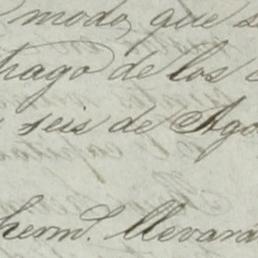 modo, que s
hago de los
seis de Ago
herm.d llevara